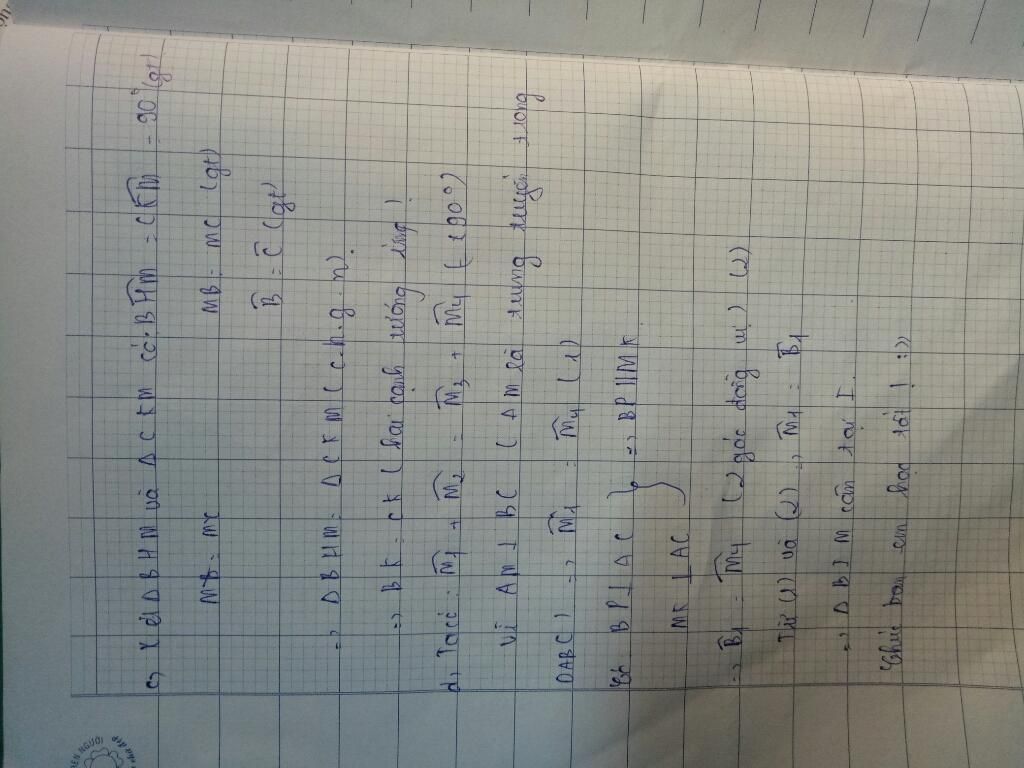 c, Xét ΔBHM và ΔCKM có: BHM = CKM = 90° (gt)
MB = MC MB = MC (gt)
B = C (gt)
=> ΔBHM = ΔCKM (c.h.g.n).
=> BK = CK (hai cạnh tương ứng)
d, Ta có: M1 + M2 = M3 + M4 (= 90°)
Vì AM ⊥ BC (AM là trung tuyến trong
ΔABC) => M1 = M4 (1)
Có BP ⊥ AC } => BP // MK
MK ⊥ AC
=> B1 = M4 (2 góc đồng vị) (2)
Từ (1) và (2) => M1 = B1
=> ΔBIM cân tại I.
Chúc bạn em học tốt! :))
NGƯỜI